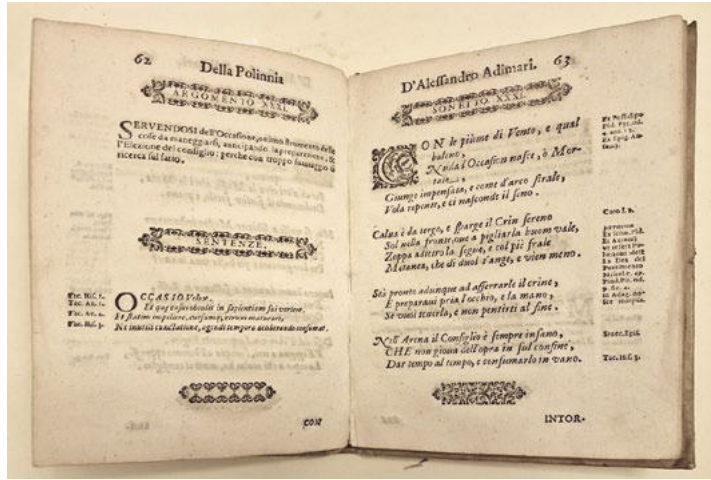 62
Della Polinnia
ARGOMENTO XXXI.
SERVENDOSI dell'Occasione, ottimo strumento delle
cose da maneggiarsi, anticipando la preparazione, &
l'Elezione del consiglio; perche con troppo suantaggio si
ricerca sul fatto.
SENTENZE.
Tac. Hist.
OCCASIO Velox.
Tac. An.
Tac. An. 2.
Tac. Hist. 3.
Ne inutili cunctatione, agendi tempora consumat.
CON
D'Alessandro Adimari. 63
SONETTO XXXI.
CON le piume di Vento, e qual
baleno,
Nuda l'Occasion nasce, ò Mor-
tale,
Giunge impensata, e come d'arco strale,
Vola repente, e ci nasconde il seno.
Calua è da tergo, e sparge il Crin sereno
Sol nella fronte, oue a pigliarla huom vale,
Zoppa adietro la segue, e col piè frale
Metanea, che di duol s'ange, e vien meno.
Stà pronto adunque ad afferrarle il crine,
E preparaui pria l'occhio, e la mano,
Se vuoi tenerla, e non pentirti al fine.
Nell'Arena il Consiglio è sempre insano,
CHE non gioua dell'opra in sul confine,
Dar tempo al tempo, e consumarlo in vano.
Tac. Hist. 3.
INTOR-